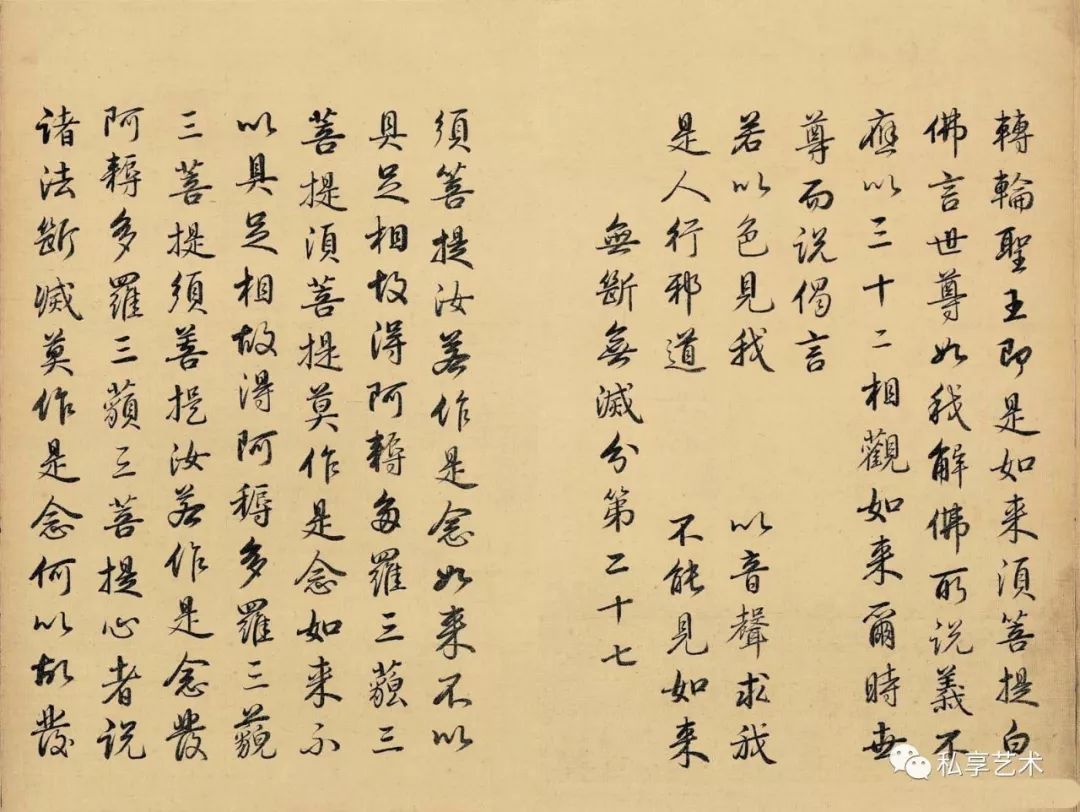 轉輪聖王即是如来須菩提白
佛言世尊如我解佛所説義不
應以三十二相觀如来爾時世
尊而説偈言
若以色見我 以音聲求我
是人行邪道 不能見如来
無斷無滅分第二十七
須菩提汝若作是念如来不以
具足相故得阿耨多羅三藐三
菩提須菩提莫作是念如来不
以具足相故得阿耨多羅三藐
三菩提須菩提汝若作是念發
阿耨多羅三藐三菩提心者説
诸法斷滅莫作是念何以故發
私享艺术